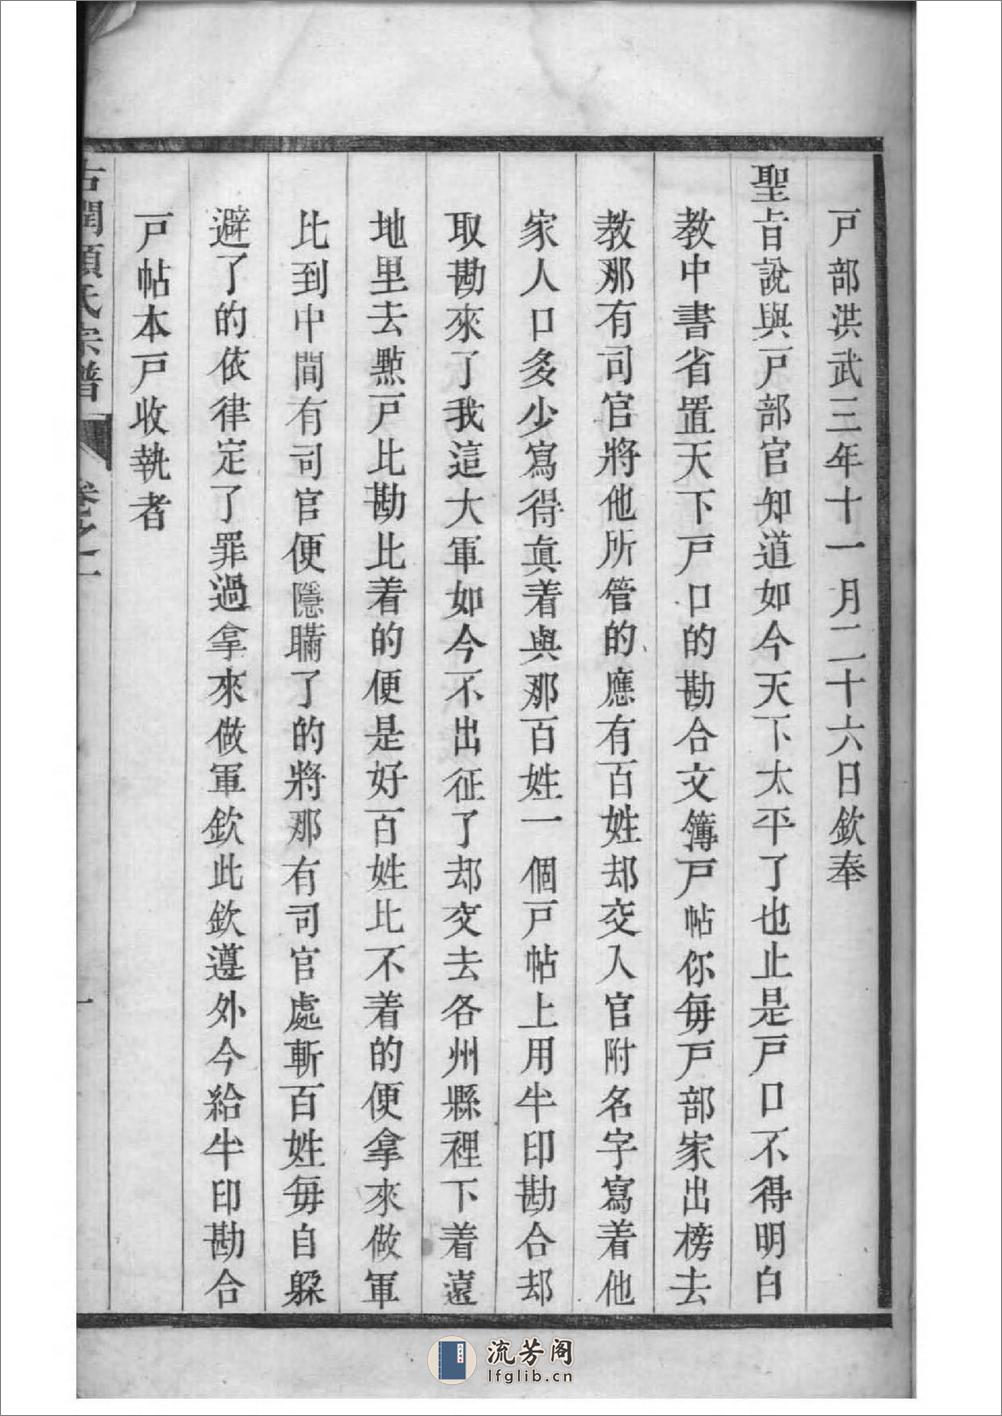 戸部洪武三年十一月二十六日欽奉
聖旨說與戸部官知道如今天下太平了也止是戸口不得明白
教中書省置天下戸口的勘合文簿戸帖你每戸部家出榜去
教那有司官將他所管的應有百姓却交入官附名字寫着他
家人口多少寫得眞着與那百姓一個戸帖上用半印勘合却
取勘來了我這大軍如今不出征了却交去各州縣裡下着遶
地里去㸃戸比勘比着的便是好百姓比不着的便拿來做軍
比到中間有司官便隱瞞了的將那有司官處斬百姓每自躱
避了的依律定了罪過拿來做軍欽此欽遵外今給半印勘合
戸帖本戸收執者
古潤顧氏宗譜 卷之一 一
流芳阁
lfglib.cn